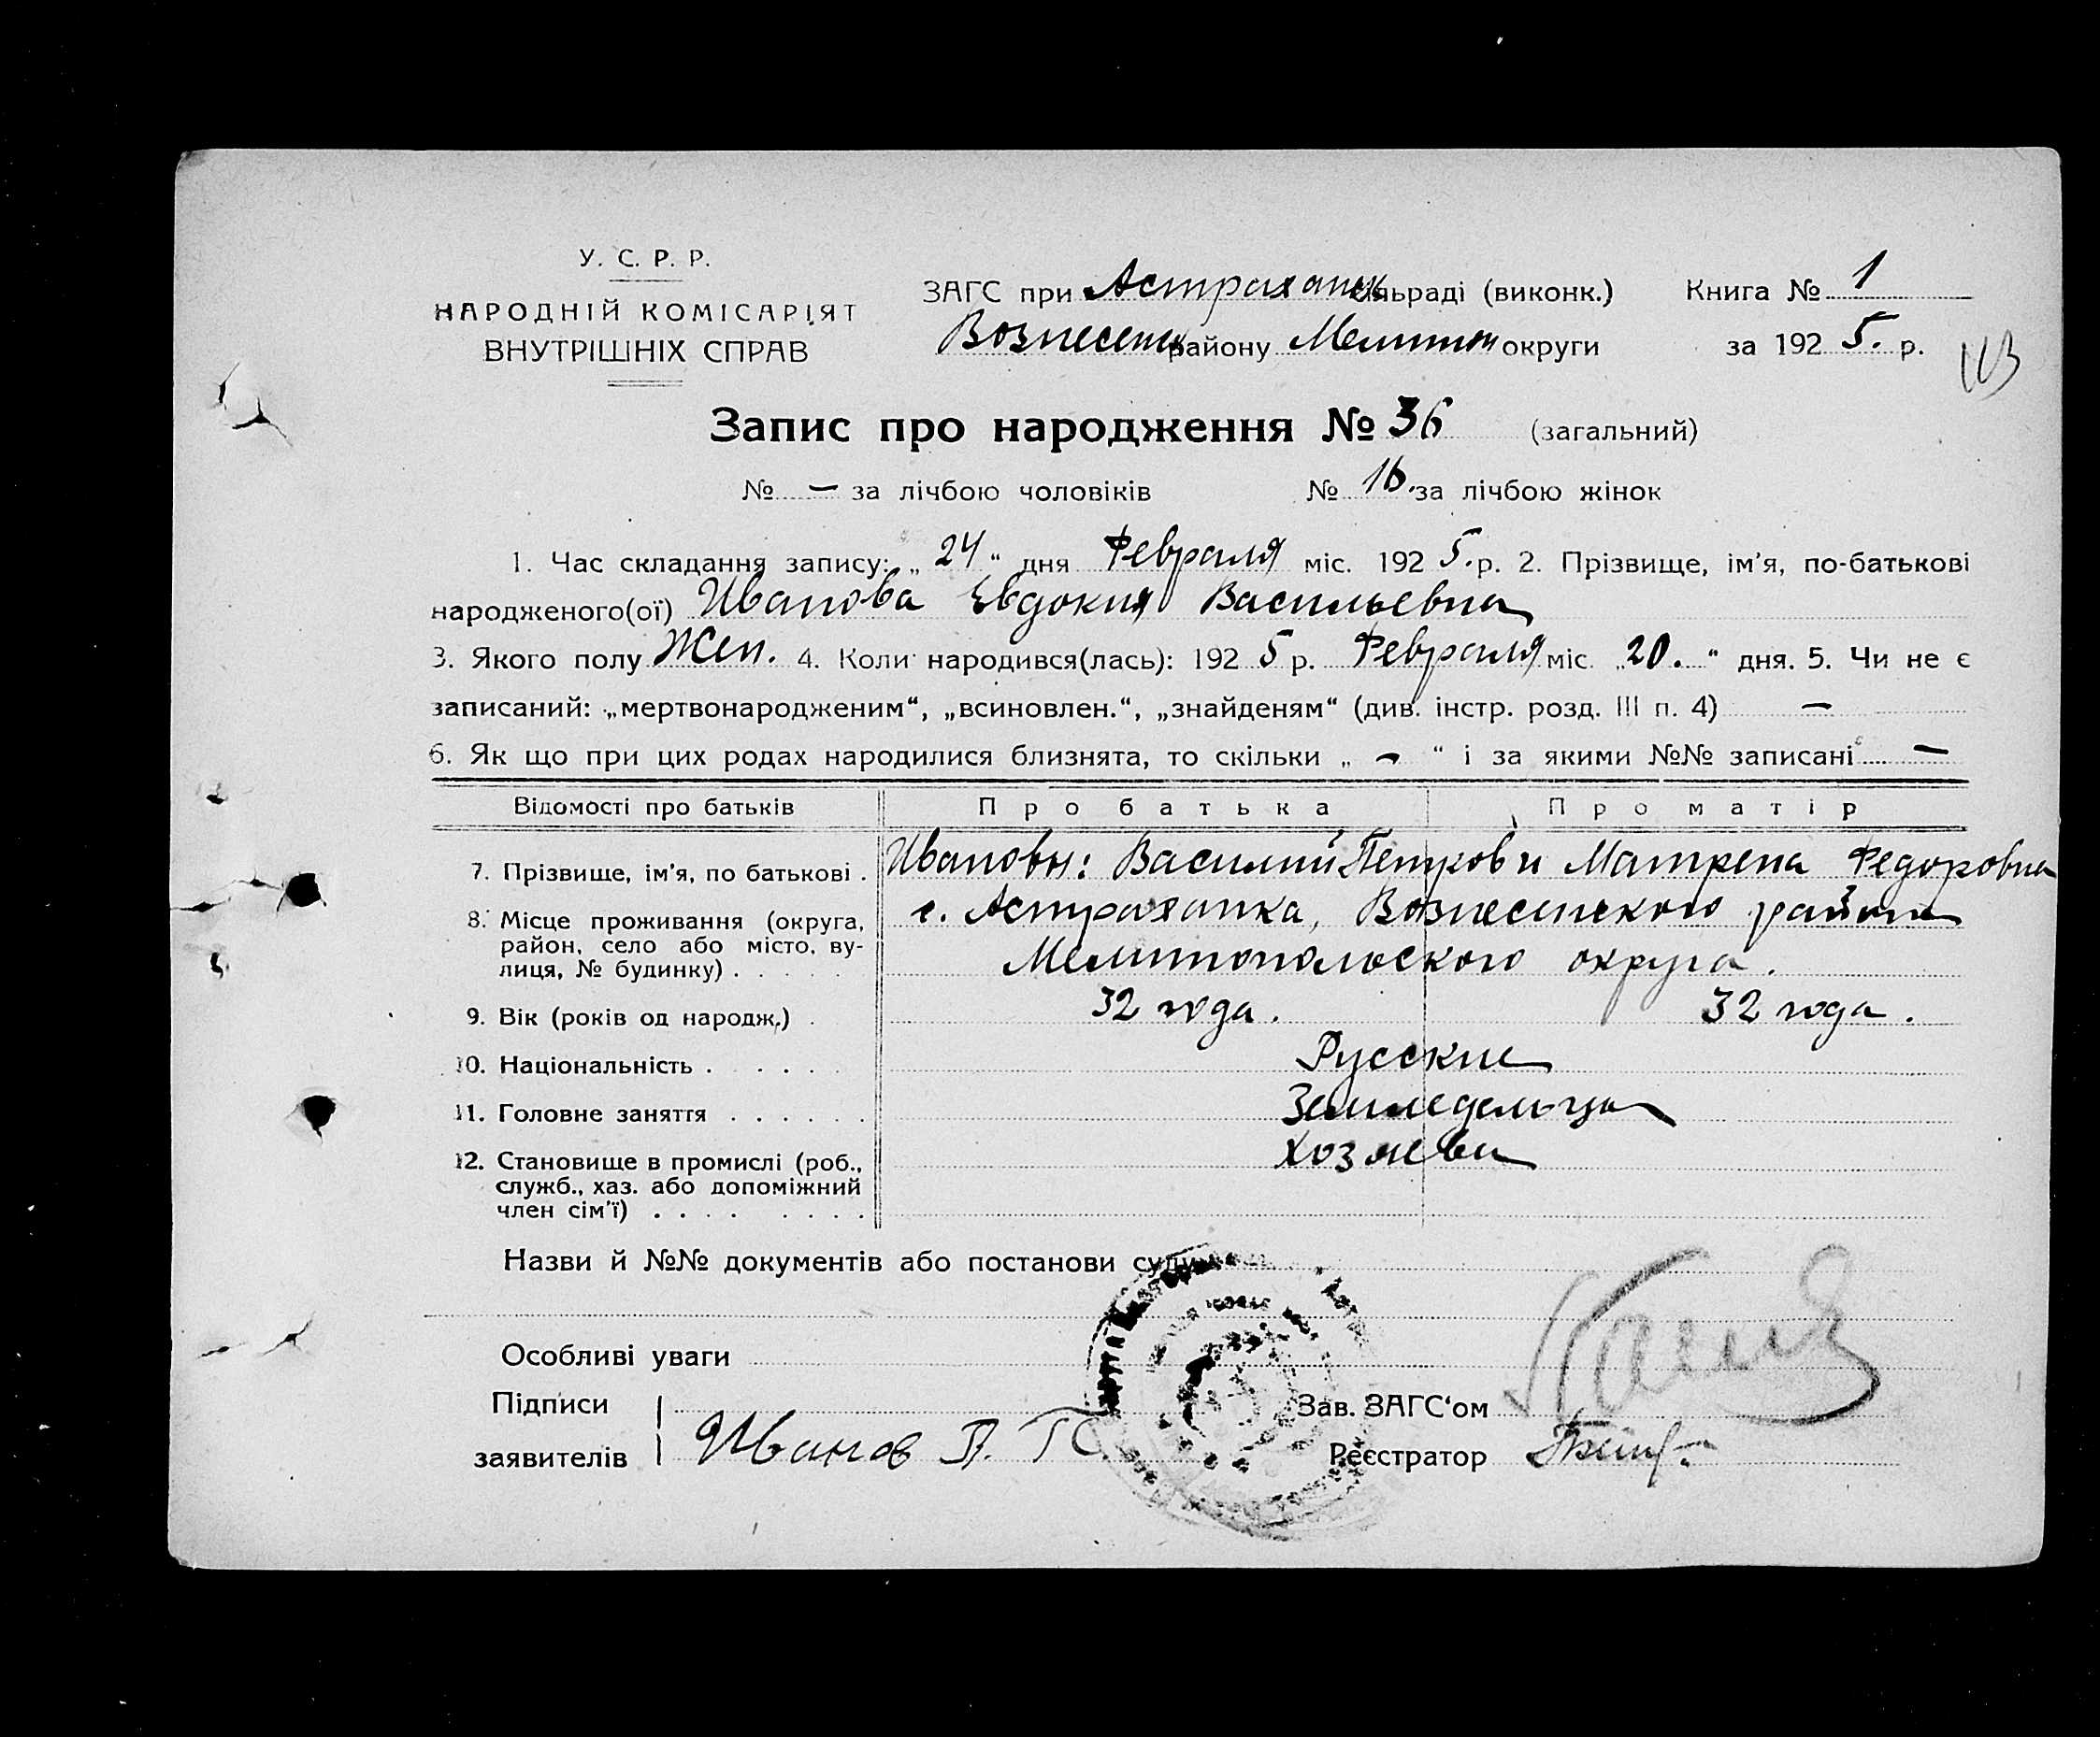 У. С. Р. Р.
НАРОДНІЙ КОМІСАРІЯТ
ВНУТРІШНІХ СПРАВ
ЗАГС при Астраханск сільраді (виконк.) Книга № 1
Вознесенск району Мелитоп округи за 1925. р.
113
Запис про народження № 36 (загальний)
№ — за лічбою чоловіків № 16. за лічбою жінок
1. Час складання запису: „24“ дня Февраля міс. 1925. р. 2. Прізвище, ім'я, по-батькові
народженого(ої) Иванова Евдокия Васильевна
3. Якого полу Жен. 4. Коли народився(лась): 1925 р. Февраля міс. „20.“ дня. 5. Чи не є
записаний: „мертвонародженим“, „всиновлен.“, „знайденям“ (див. інстр. розд. III п. 4) —
6. Як що при цих родах народилися близнята, то скільки „ — “ і за якими №№ записані —
Відомості про батьків Про батька Про матір
7. Прізвище, ім'я, по батькові . Ивановы: Василий Петров и Матрена Федоровна
8. Місце проживання (округа, с. Астраханка, Вознесенского района
район, село або місто, ву-
лиця, № будинку) . . . . Мелитопольского округа.
9. Вік (років од народж.) . 32 года. 32 года.
10. Національність . . . . . Русские
11. Головне заняття . . . . . . Земледельцы
12. Становище в промислі (роб., Хозяева
служб., хаз. або допоміжний
член сім'ї) . . . . . . . .
Назви й №№ документів або постанови суду
Особливі уваги
Підписи
Зав. ЗАГС‘ом
заявителів Иванов В. П.
Реєстратор